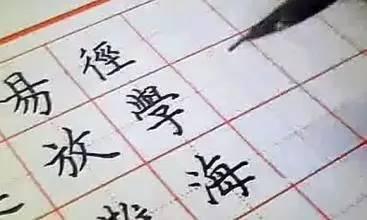 徑學海
易放